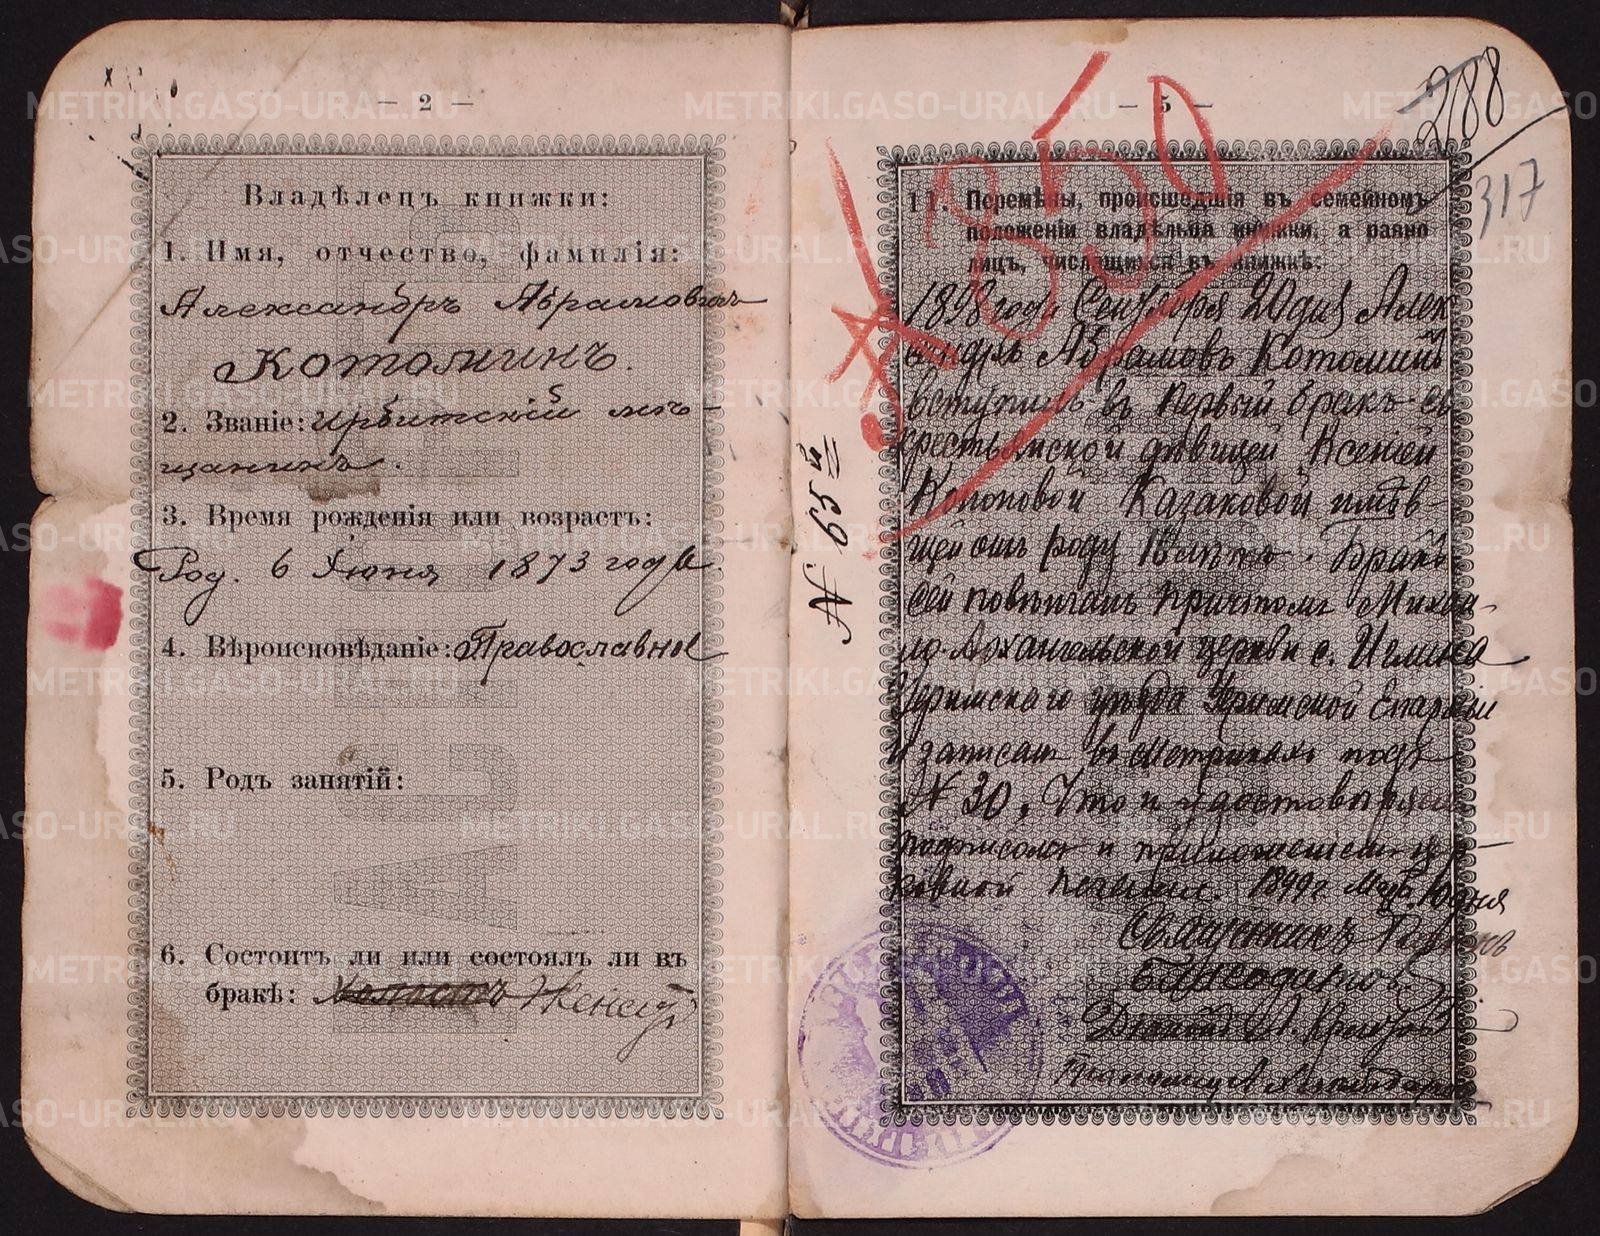 — 2 —
Владѣлецъ книжки:
1. Имя, отчество, фамилія:
Александръ Абрамовичъ
Котоминъ.
2. Званіе: Ирбитскій мѣ-
щанинъ.
3. Время рожденія или возрастъ:
Род. 6 Іюня 1873 года
4. Вѣроисповѣданіе: Православное
5. Родъ занятій:
6. Состоитъ ли или состоялъ ли въ
бракѣ: Холостъ Женатъ
— 5 —
850
288
317
№ 95й
11. Перемѣны, происшедшія въ семейномъ
положеніи владѣльца книжки, а равно
лицъ, числящихся въ книжкѣ:
1898 года Сентября 20 дня Алек
сандръ Абрамовъ Котоминъ
вступилъ въ первый бракъ съ
крестьянской дѣвицей Ксеніей
Казаковой имѣв-
шей отъ роду 18 лѣтъ. Бракъ
сей повѣнчанъ причтомъ Михаи-
ло-Архангельской церкви с. Иглина
Уфимскаго уѣзда Уфимской Епархіи
и записанъ въ метрикахъ подъ
№ 30. Что и удостовѣряемъ
подписомъ и приложеніемъ цер-
ковной печати. 1899 г.
Священникъ
METRIKI.GASO-URAL.RU